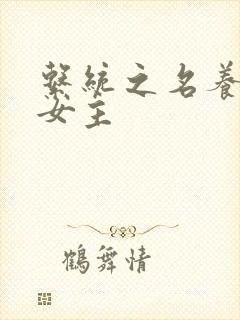 繫統之名養
女主
鶴舞情